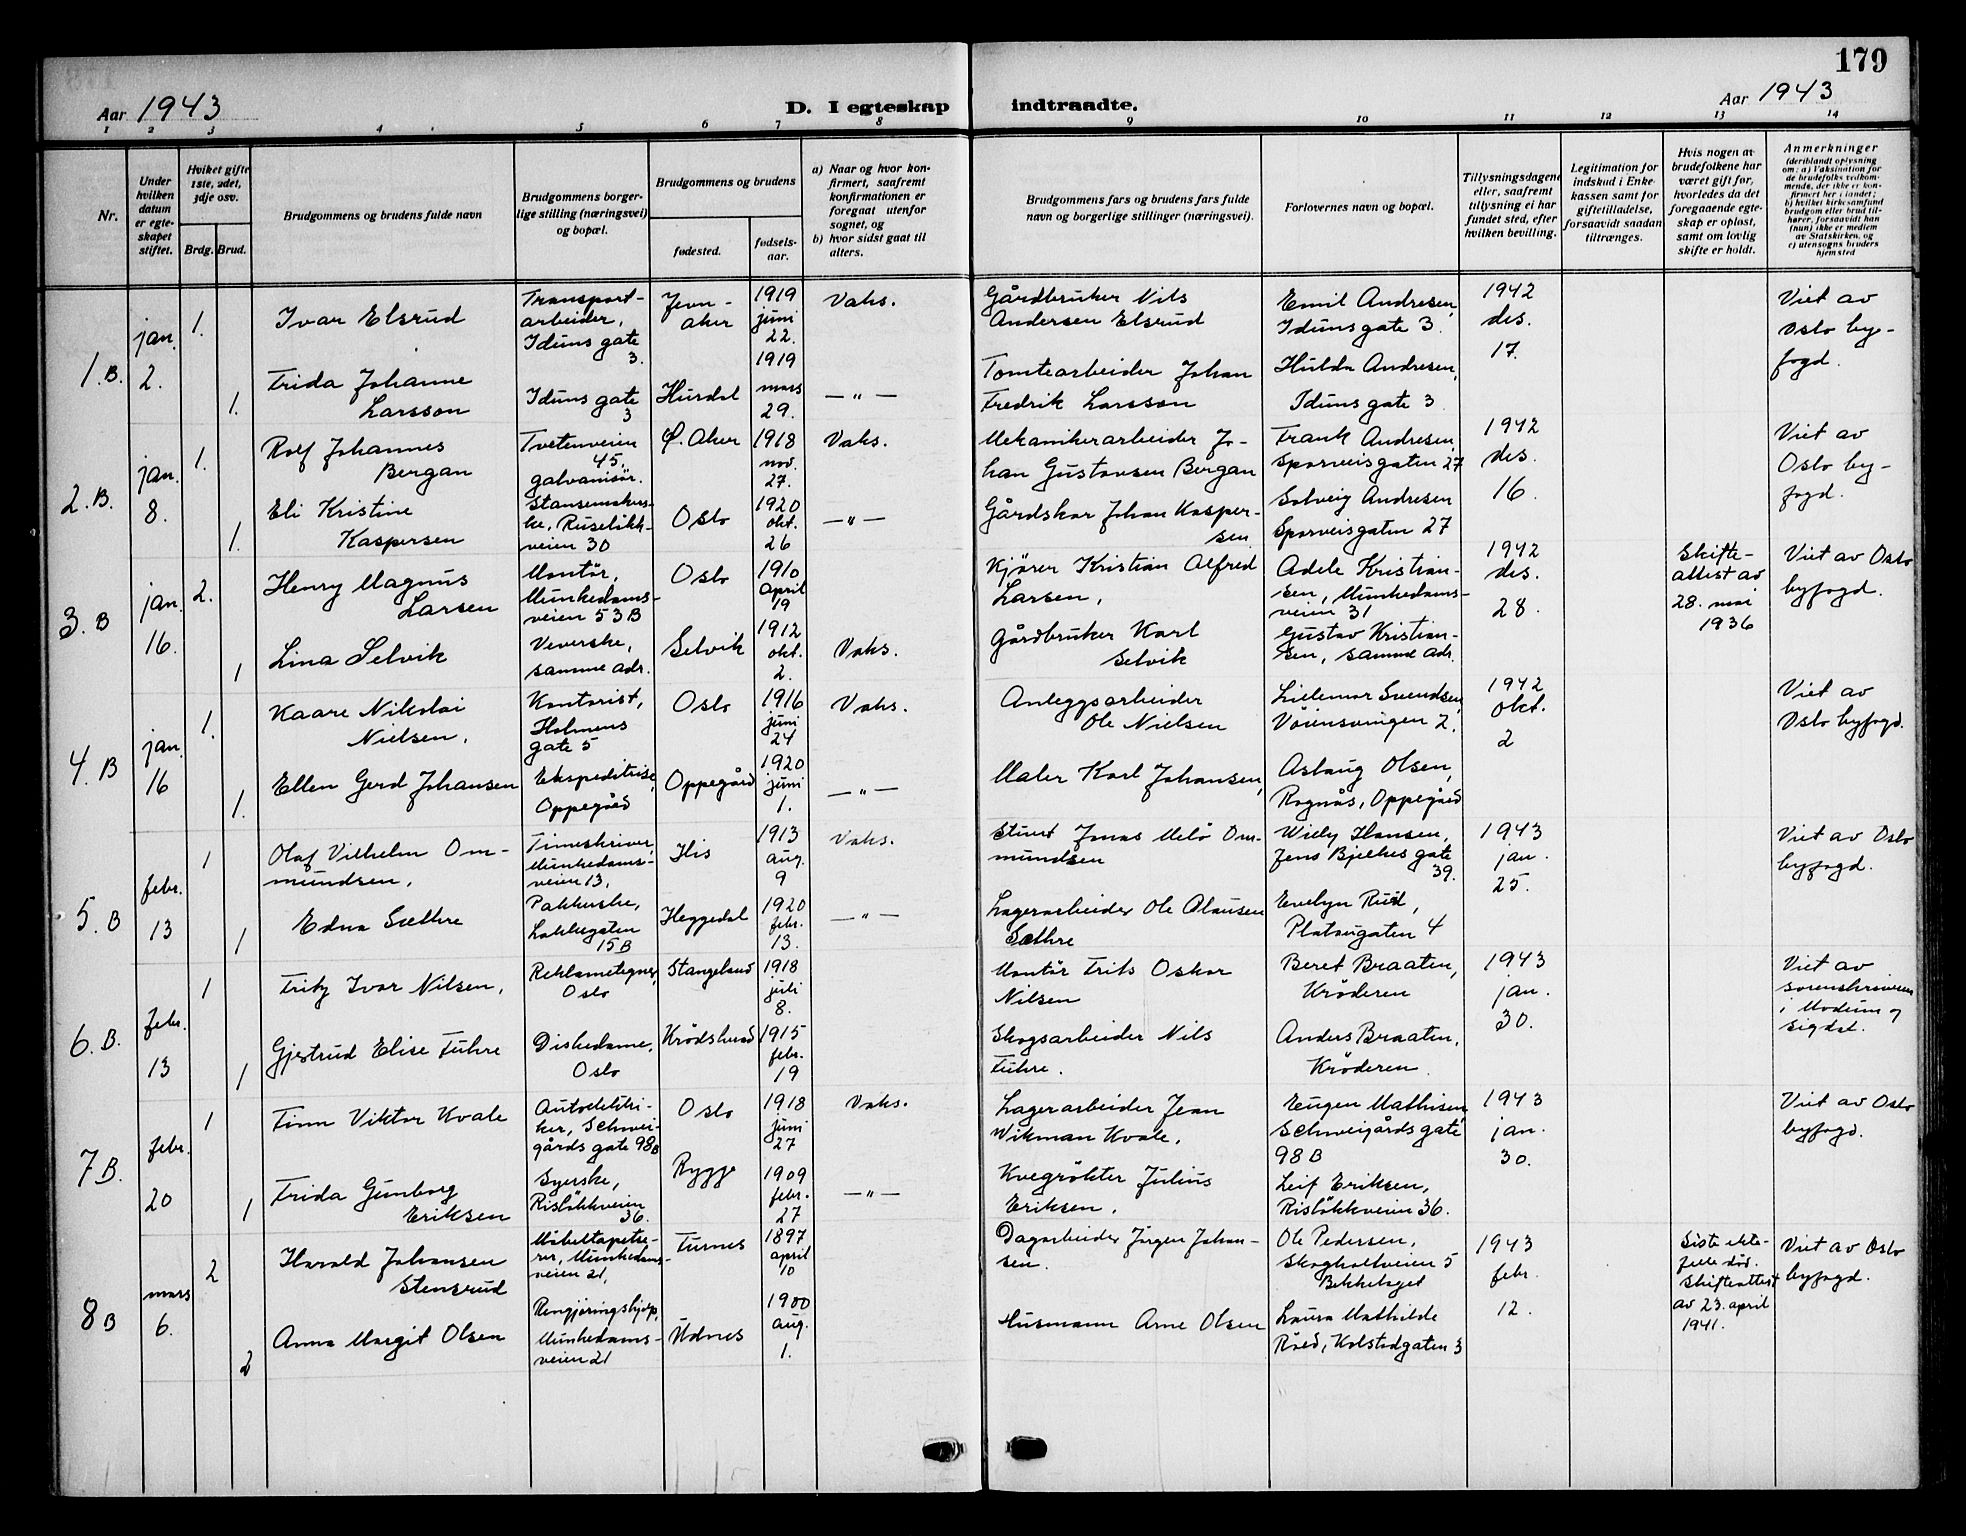 179
Aar 1943
D. I egteskap indtraadte.
Aar 1943
1 2 3 4 5 6 7 8 9 10 11 12 13 14
Nr.
Under hvilken datum er egteskapet stiftet.
Hviket gifte 1ste, 2det, 3dje osv.
Brdg. Brud.
Brudgommens og brudens fulde navn
Brudgommens borger-
lige stilling (næringsvei)
og bopæl.
Brudgommens og brudens
fødested.
fødsels-
aar.
a) Naar og hvor kon-
firmert, saafremt
konfirmationen er
foregaat utenfor
sognet, og
b) hvor sidst gaat til
alters.
Brudgommens fars og brudens fars fulde
navn og borgerlige stillinger (næringsvei).
Forlovernes navn og bopæl.
Tillysningsdagene
eller, saafremt
tillysning ei har
fundet sted, efter
hvilken bevilling.
Legitimation for
indskud i Enke-
kassen samt for
giftetilladelse,
forsaavidt saadan
tiltrænges.
Hvis nogen av
brudefolkene har
været gift før,
hvorledes da det
foregaaende egte-
skap er opløst,
samt om lovlig
skifte er holdt.
Anmerkninger
(deriblandt oplysning
om: a) Vaksination for
de brudefolks vedkom-
mende, der ikke er kon-
firmert her i landet;
b) hvilket kirkesamfund
brudgom eller brud til-
hører, forsaavidt han
(hun) ikke er medlem
av Statskirken, og
c) utensogns bruders
hjemsted
1.B.
jan.
2.
1.
Ivar Elsrud
Transport-
arbeider,
Iduns gate
3.
Jevn-
aker
1919
juni
22.
Vaks.
Gårdbruker Nils
Andersen Elsrud
Emil Andresen,
Iduns gate 3.
1942
des.
17.
Viet av
Oslo by-
fogd.
1.
Frida Johanne
Larsson
Iduns gate
3
Hurdal
1919
mars
29.
— " —
Tomtearbeider Johan
Fredrik Larsson
Hulda Andresen,
Iduns gate 3.
2.B.
jan.
8.
1.
Rolf Johannes
Bergan
Tvetenveien
45
galvanisør.
Ø. Aker
1918
nov.
27.
Vaks.
Mekanikerarbeider Jo-
han Gustavsen Bergan
Frank Andresen,
Sporveisgaten 27
1942
des.
16.
Viet av
Oslo by-
fogd.
1.
Eli Kristine
Kaspersen
ke, Ruseløkk-
veien 30
Oslo
1920
okt.
26
— " —
Gårdskar Johan Kasper-
sen
Solveig Andresen
Sporveisgaten 27
3.B
jan.
16.
2.
Henry Magnus
Larsen
Montør,
Munkedams-
veien 53 B
Oslo
1910
april
19
Kjører Kristian Alfred
Larsen,
Adele Kristian-
sen, Munkedams-
veien 31
1942
des.
28.
Skifte-
attest av
28. mai
1936
Viet av Oslo
byfogd.
1
Lina Selvik
Veverske,
samme adr.
Selvik
1912
okt.
2.
Vaks.
Gårdbruker Karl
Selvik
Gustav Kristian-
sen, samme adr.
4.B
jan.
16
1.
Kaare Nikolai
Nielsen,
Kontorist,
Holmens
gate 5
Oslo
1916
juni
24
Vaks.
Anleggsarbeider
Ole Nielsen
Lillemor Svendsen,
Vøiensvingen 2.
1942
okt.
2
Viet av
Oslo byfogd.
1.
Ellen Gerd Johansen
Ekspeditrise,
Oppegård
Oppegård
1920
juni
1.
— " —
Maler Karl Johansen,
Aslaug Olsen,
Rognås, Oppegård
5.B
febr.
13
1
Olaf Vilhelm Om-
mundsen,
Timeskriver,
Munkedams-
veien 13,
His
1913
aug.
9
Vaks.
Stuert Jonas Melø Om-
mundsen
Willy Hansen,
Jens Bjelkes gate
39.
1943
jan.
25.
Viet av Oslo
byfogd.
1
Edna Sæthre
Pakkerske,
Lakkegaten
15B
Heggedal
1920
febr.
13.
— " —
Lagerarbeider Ole Clausen
Sæthre
Evelyn Ruud,
Platougaten 4
6.B.
febr.
13
1
Fritz Ivar Nilsen,
Reklametegner,
Oslo
Stangeland
1918
juli
8.
Montør Frits Oskar
Nilsen
Beret Braaten,
Krøderen
1943
jan.
30.
Viet av
sorenskriveren
i Modum og
Sigdal.
1
Gjertrud Elise Fuhre
Diskedame,
Oslo
Krødsherad
1915
febr.
19
Skogsarbeider Nils
Fuhre.
Anders Braaten,
Krøderen.
7B.
febr.
20
1
Finn Viktor Kvale
Autoelektri-
ker, Schwei-
gårds gate 98B
Oslo
1918
juni
27
Vaks.
Lagerarbeider Jean
Wikman Kvale,
Eugen Mathisen
Schweigårds gate
98 B
1943
jan.
30.
Viet av Oslo
byfogd.
1
Frida Gunborg
Eriksen
Syerske,
Risløkkveien
36.
Rygge
1909
febr.
27
— " —
Kvegrøkter Julius
Eriksen,
Leif Eriksen,
Risløkkveien 36.
8B
mars
6.
2
Harald Johansen
Stensrud
Møbeltapetse-
rer, Munkedams-
veien 21,
Furnes
1897
april
10
Dagarbeider Jørgen Johan-
sen.
Ole Pedersen,
Skogholtveien 5
Bekkelaget
1943
febr.
12.
Siste ekte-
felle død.
Skifteattest
av 23. april
1941.
Viet av Oslo
byfogd.
2
Anna Margit Olsen
Rengjøringshjelp,
Munkedams-
veien 21
Udnes
1900
aug.
1.
Husmann Arne Olsen
Laura Mathilde
Røed, Kolstadgaten 3